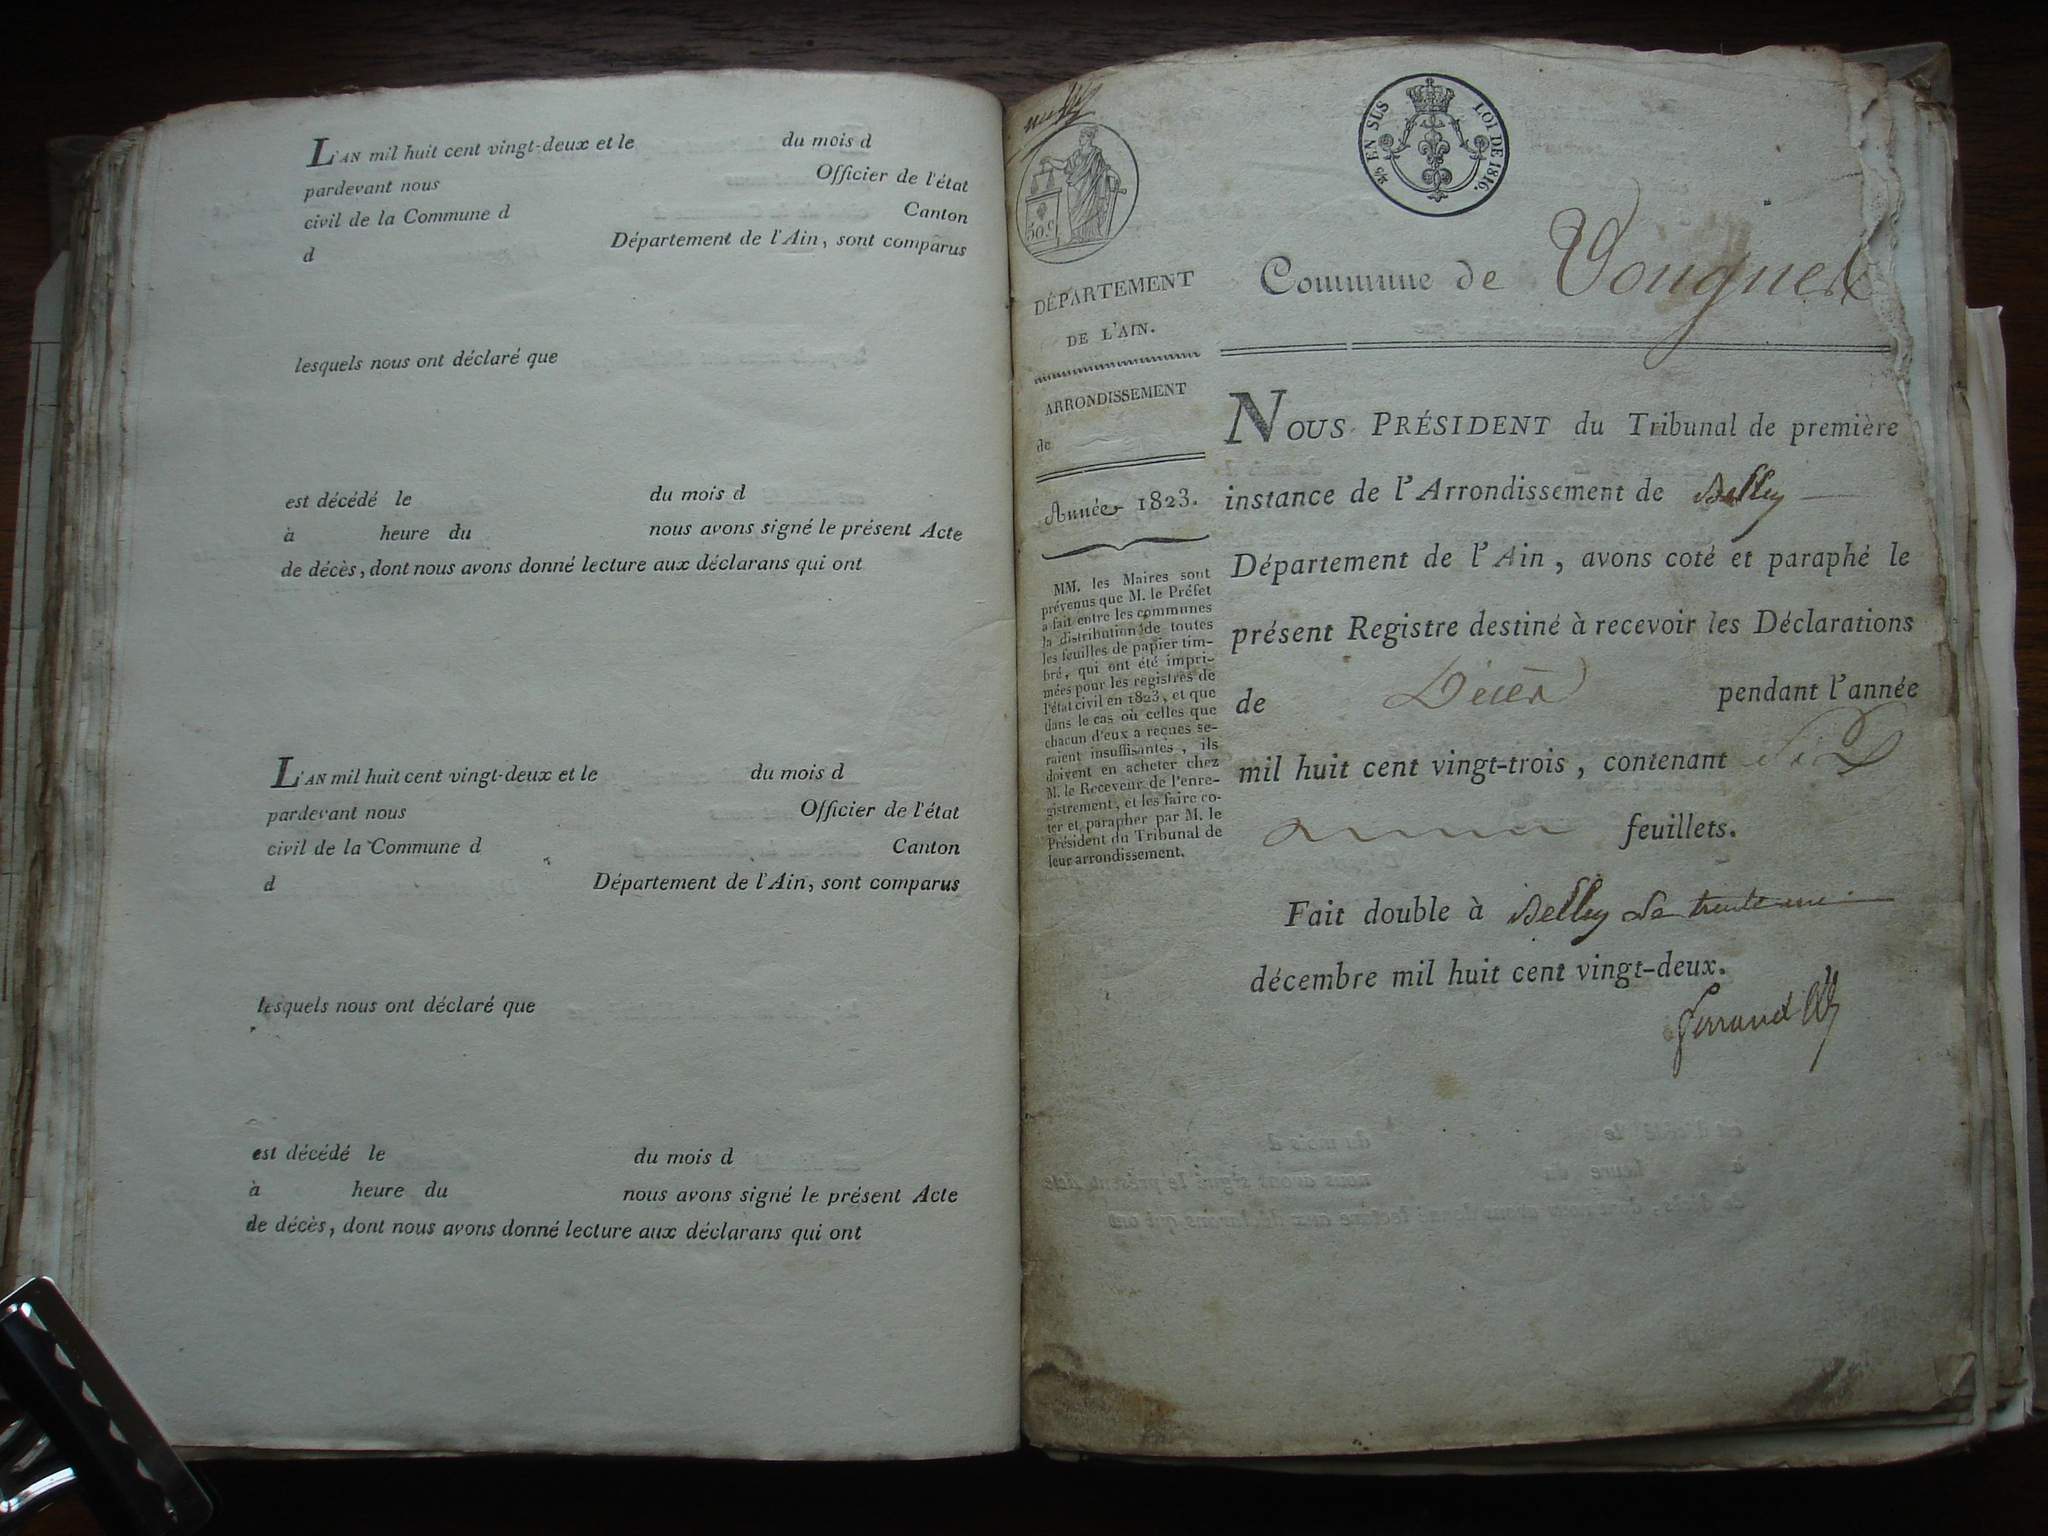 L'AN mil huit cent vingt-deux et le du mois d
pardevant nous Officier de l'état
civil de la Commune d Canton
d Département de l'Ain, sont comparus
lesquels nous ont déclaré que
est décédé le du mois d
à heure du nous avons signé le présent Acte
de décès, dont nous avons donné lecture aux déclarans qui ont
L'AN mil huit cent vingt-deux et le du mois d
pardevant nous Officier de l'état
civil de la Commune d Canton
d Département de l'Ain, sont comparus
lesquels nous ont déclaré que
est décédé le du mois d
à heure du nous avons signé le présent Acte
de décès, dont nous avons donné lecture aux déclarans qui ont
50.C
EN SUS LOI DE 1816.
DÉPARTEMENT
DE L'AIN.
ARRONDISSEMENT
de
Année 1823.
MM. les Maires sont
prévenus que M. le Préfet
a fait entre les communes
la distribution de toutes
les feuilles de papier tim-
bré, qui ont été impri-
mées pour les registres de
l'état civil en 1823, et que
dans le cas où celles que
chacun d'eux a reçues se-
raient insuffisantes, ils
doivent en acheter chez
M. le Receveur de l'enre-
gistrement, et les faire co-
ter et parapher par M. le
Président du Tribunal de
leur arrondissement.
Commune de
NOUS PRÉSIDENT du Tribunal de première
instance de l'Arrondissement de Belley
Département de l'Ain, avons coté et paraphé le
présent Registre destiné à recevoir les Déclarations
de Décès pendant l'année
mil huit cent vingt-trois, contenant Six
feuillets.
Fait double à Belley le trente un
décembre mil huit cent vingt-deux.
Ferrand